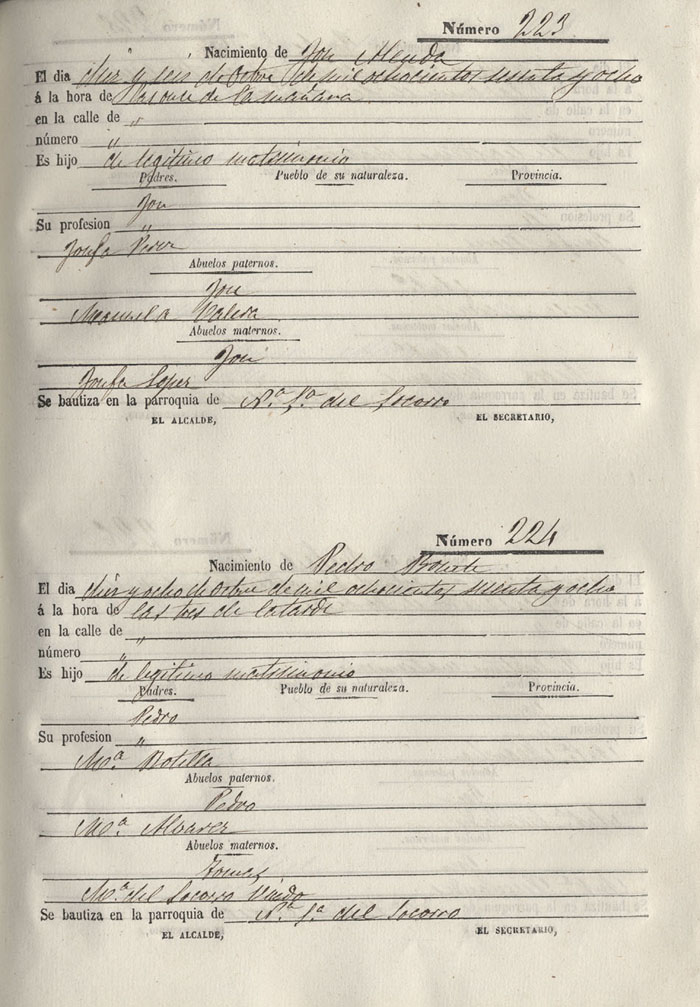 Número 223
Nacimiento de José
El dia diez y seis de Octbre de mil ochocientos sesenta y ocho
á la hora de las once de la mañana
en la calle de "
número "
Es hijo de legitimo matrimonio
Padres. Pueblo de su naturaleza. Provincia.
José
Su profesion "
Josefa
Abuelos paternos.
José
Manuela
Abuelos maternos.
José
Josefa Lopez
Se bautiza en la parroquia de Nª Sª del Socorro
EL ALCALDE, EL SECRETARIO,
Número 224
Nacimiento de Pedro
El dia diez y ocho de Octbre de mil ochocientos sesenta y ocho
á la hora de las tres de la tarde
en la calle de "
número "
Es hijo de legitimo matrimonio
Padres. Pueblo de su naturaleza. Provincia.
Pedro
Su profesion "
Mª Botella
Abuelos paternos.
Pedro
Mª Alvarez
Abuelos maternos.
Mª del Socorro
Se bautiza en la parroquia de Nª Sª del Socorro
EL ALCALDE, EL SECRETARIO,